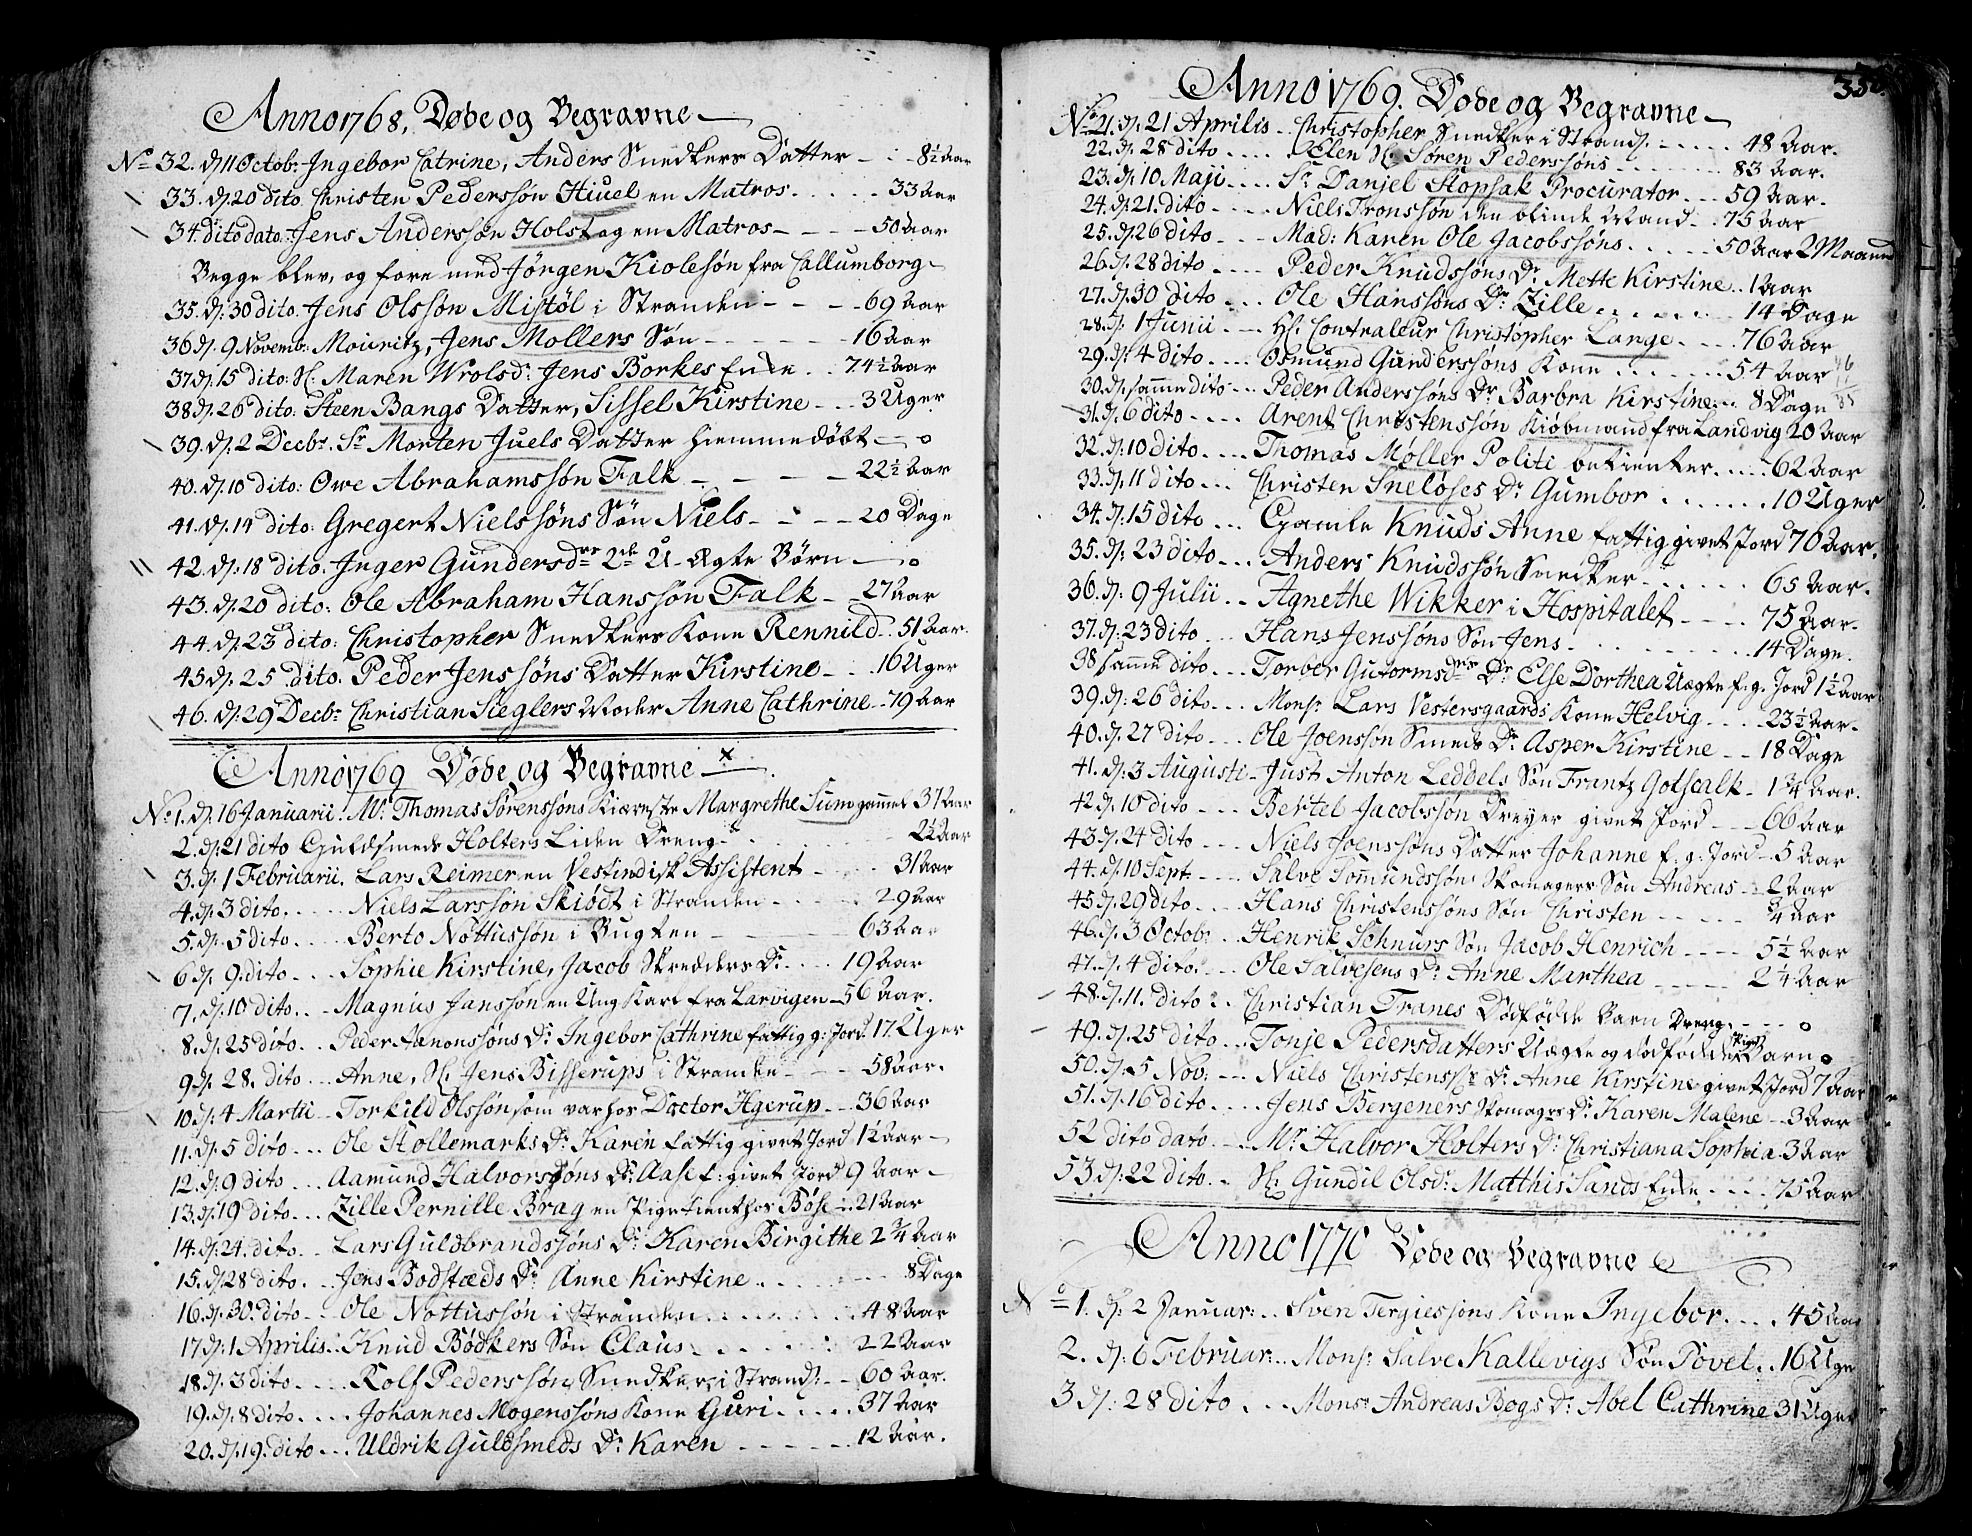 Anno 1768, Døde og Begravne
No 32. d. 11 Octobr. Ingebor Catrine, Anders Snedkers Datter - 8½ Aar
33. d. 20 dito. Christen Pederssøn Hiuel en Matros - 33 Aar
34. dito dato. Jens Anderssøn Holst og en Matros - 50 Aar
Begge blev, og fore med Jørgen Kiolesøn fra Callumborg
35. d. 30 dito. Jens Olssøn Mistøl i Stranden - 69 Aar
36 d. 9 Novemb. Mouritz, Jens Mollers Søn - 16 Aar
37 d. 15 dito. Sl. Maren Wrolsd. Jens Borkes Enke - 74½ Aar
38 d. 26 dito. Steen Bangs Datter, Sissel Kirstine - 3 Uger
39. d. 2 Decbr. Sr. Morten Juels Datter hiemmedøbt - 0
40. d. 10 dito: Owe Abrahamssøn Falk - 22½ Aar
41. d. 14 dito: Gregert Nielssøns Søn Niels - 20 Dage
42. d. 18 dito. Inger Gundersdrs 2de U-Ægte Børn - 0
43. d. 20 dito: Ole Abraham Hanssøn Falk - 27 Aar
44. d. 23 dito: Christopher Snedkers Kone Rennild. 51 Aar.
45 d. 25 dito. Peder Jenssøns Datter Kirstine - 16 Uger
46. d. 29 Decbr. Christian Sieglers Moder Anne Cathrine - 79 Aar
Anno 1769 Døde og Begravne
No 1. d. 16 Januarii. Mr. Thomas Sørenssøns Kiæreste Margrethe Sum gammel 37 Aar
2. d. 21 dito Guldsmed Holters Liden Dreng - 2½ Aar
3. d. 1 Februarii. Lars Reimer en Vestindisk Assistent - 31 Aar
4. d. 3 dito. Niels Larssøn Skiødt i Stranden - 29 Aar
5. d. 5 dito. Berto Nottussøn i Bugten - 63 Aar
6 d. 9. dito. Sophie Kirstine, Jacob Skredders Dr. 19 Aar
7. d. 10 dito. Magnus Janssøn en Ung Karl fra Larvigen - 56 Aar.
8. d. 25 dito. Peder Aanonssøns Dr. Ingebor Cathrine fattig g: Jord 17. Uger
9 d. 28. dito. Anne, Sl. Jens Bisserups i Stranden - 58 Aar.
10 d. 4 Martii - Torkild Olssøn som var hos Doctor Hgerup - 36 Aar
11. d. 5 dito. Ole Stollemarks Dr. Karen fattig givet Jord 1½ Aar
12. d. 9 dito. Aamund Halvorssøns Dr. Aase f: givet Jord 9 Aar
13. d. 19 dito. Zille Pernille Brag en Pige tient hos Bøse - 21 Aar
14. d. 24. dito. Lars Guldbrandssøns Dr. Karen Birgithe 2¾ Aar
15. d. 28 dito. Jens Bodstæds Dr. Anne Kirstine. 8 Dage
16. d. 30. dito. Ole Nottussøn i Stranden. 48 Aar
17 d. 1 Aprilis. Knud Bødkers Søn Claus. 22 Aar
18 d. 3 dito. Rolf Pederssøn Snedker i Strand. 60 Aar.
19. d. 8 dito. Johannes Mogenssøns Kone Guri. 37 Aar
20. d. 19. dito. Uldrik Guldsmeds Dr. Karen - 12 Aar.
Anno 1769. Døde og Begravne
No 21. d. 21 Aprilis - Christopher Snedker i Strand. 48 Aar.
22. d. 28 dito. Elen Sl. Søren Pederssøns - 83 Aar.
23. d. 10 Maji. Sr. Danjel Stopsak Procurator - 59 Aar.
24. d. 21. dito. Niels Tronssøn den blinde Mand - 75 Aar
25. d. 26 dito. Mad: Karen Ole Jacobssøns. 50 Aar 2 Maaned
26. d. 28 dito. Peder Knudssøns Dr. Mette Kirstine. 1 Aar
27. d. 30 dito. Ole Hanssøns Dr. Zille. 14 Dage
28. d. 1 Junii. Hr. Contralleur Christopher Lange. 76 Aar
29. d. 4 dito. Osmund Gunderssøns Kone. 54 Aar
30. d. samme dito. Peder Anderssøns Dr. Barbra Kirstine. 8 Dage
31. d. 6 dito. Arent Christenssøn Kiøbmand fra Landvig 20 Aar
32. d. 10 dito. Thomas Møller Politi betienter. 62 Aar
33. d. 11 dito. Christen Sneløses Dr. Gumbor. 10 Uger
34. d. 15 dito. Gamle Knuds Anne fattig givet Jord 70 Aar.
35. d. 23 dito. Anders Knudssøn Snedker. 65 Aar.
36. d. 9 Julii. Agnethe Wikker i Hospitalet - 75 Aar.
37. d. 23 dito. Hans Jenssøns Søn Jens. 14 Dage.
38 samme dito. Torber Gutormsdrs Dr. Else Dorthea Uægte f. g. Jord 1½ Aar
39. d. 26 dito. Monsr. Lars Vestersgaards Kone Helvig. 23½ Aar.
40. d. 27 dito. Ole Joenssøn Smeds Dr. Asper Kirstine - 18 Dage
41. d. 3 Augusti - Just Anton Leddels Søn Frantz Gotscalk - 1¾ Aar.
42 d. 10 dito. Bertel Jacobssøn Dreyer givet Jord - 66 Aar
43. d. 24 dito. Niels Joenssøns Datter Johanne f: g: Jord - 5 Aar
44. d. 10 Sept. Salve Sommundssøns Skomagers Søn Andreas - 2 Aar
45. d. 29 dito. Hans Christenssøns Søn Christen - ¾ Aar
46. d. 3 Octob. Henrik Schnurs Søn Jacob Henrich - 5½ Aar
47. d. 4 dito. Ole Salvesens Dr. Anne Marthea - 2¼ Aar
48. d. 11. dito. Christian Tranes Dødfødde Barn Dreng. 0
49. d. 25 dito. Tonje Pedersdatters Uægte og dødfødde Pige Barn 0
50. d. 5 Nov. Niels Christens. Dr. Anne Kirstine givet Jord 7 Aar
51. d. 16 dito. Jens Bergeners Skomagrs Dr. Karen Malene - 3 Aar
52 dito dato. Mr. Halvor Holters Dr. Christiana Sophia. 3 Aar
53. d. 22 dito. Sl. Gundil Olsd. Matthis Sands Enke. 75 Aar
Anno 1770 Døde og Begravne
No 1. d. 2 Januar. Sven Tergiessøns Kone Ingebor. 45 Aar
2. d. 6 Februar. Monsr. Salve Kallevigs Søn Povel. 16 Uger
3 d. 28 dito. Monsr. Andreas Bogs Dr. Abel Cathrine 31 Uger